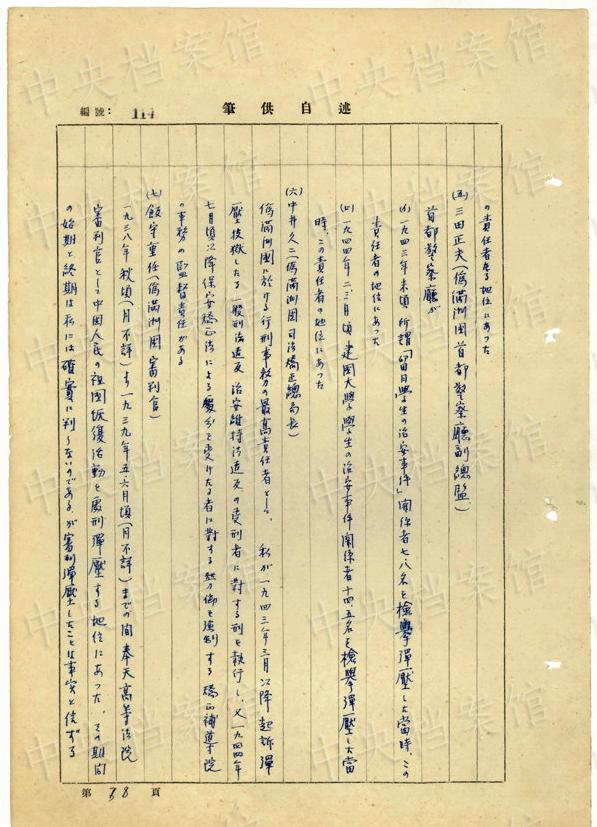 述自供筆
編號: 114
の責任者たる地位にあった
(五) 三田正夫(偽滿洲国首都警察廳副總監)
首都警察廳が
(イ) 一九四三年末頃所謂「留日學生の治安事件」関係者七八名を検擧彈壓した當時、この
責任者の地位にあった
(ロ) 一九四四年二、三月頃建国大學學生の治安事件関係者十四、五名を検擧彈壓した當
時、この責任者の地位にあった
(六) 中井久二(偽滿洲国司法矯正總局長)
偽滿洲国に於ける行刑事務の最高責任者として、私が一九四三年三月以降起訴彈
壓投獄したる一般刑法違反及治安維持法違反の受刑者に対する刑を執行し、又一九四四年
七月頃以降保安矯正法による處分を受けたる者に對する労働を強制する矯正補導院
の事務の監督責任がある
(七) 飯守重任(偽滿洲国審判官)
一九三八年秋頃(月不詳)より一九三九年五六月頃(月不詳)までの間奉天高等法院
審判官として中国人民の祖国恢復活動を處刑彈壓する地位にあった、その期間
の始期と終期は私には確實に判らないのである、が審判彈壓したことは事実と信ずる
第 78 頁
中央档案馆